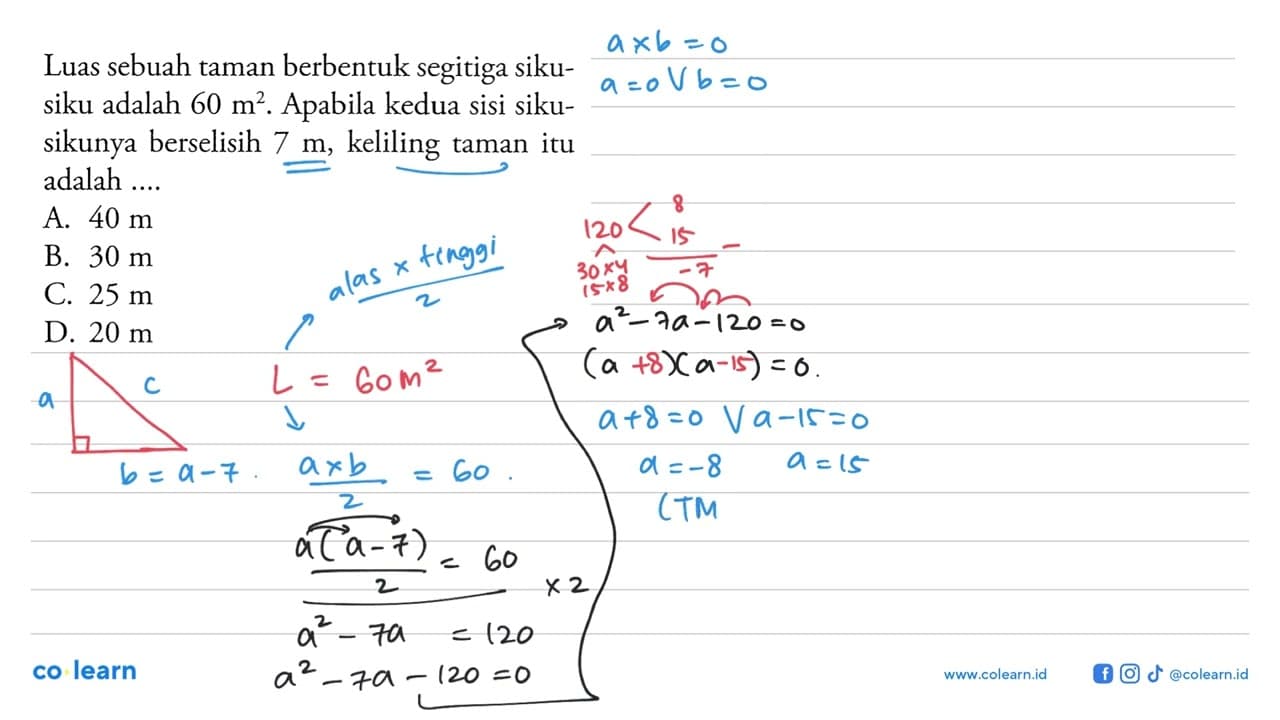 Luas sebuah taman berbentuk segitiga siku-
siku adalah 60 m². Apabila kedua sisi siku-
sikunya berselisih 7 m, keliling taman itu
adalah ....
A. 40 m
B. 30 m
C. 25 m
D. 20 m
a c
b = a - 7 .
alas x tinggi
2
L = 60 m²
a x b
2
= 60 .
a(a - 7)
2
= 60
x 2
a² - 7a = 120
a² - 7a - 120 = 0
a x b = 0
a = 0 V b = 0
120 < 8
15 -
30 x 4
15 x 8
-7
a² - 7a - 120 = 0
(a +8)(a -15) = 0.
a + 8 = 0 V a - 15 = 0
a = -8 a = 15
(TM
co learn
www.colearn.id @colearn.id